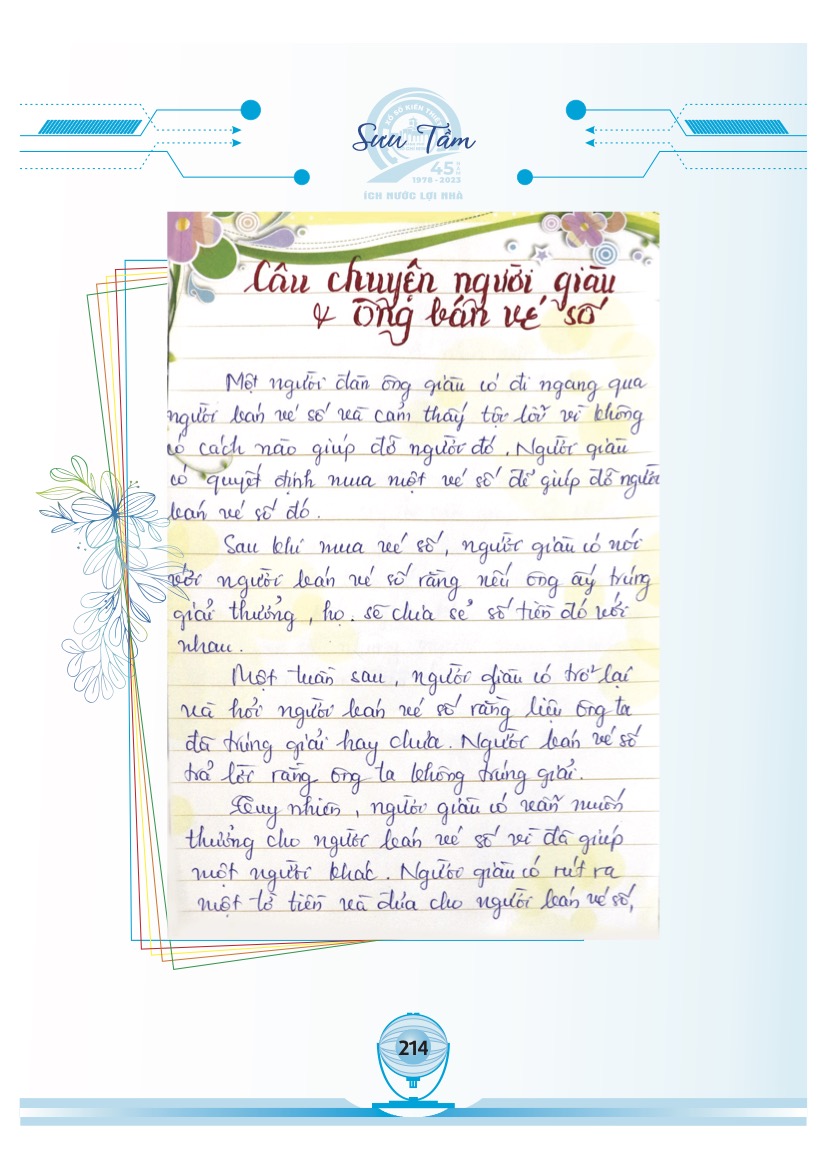 XỔ SỐ KIẾN THIẾT
Sưu Tầm
45 NĂM
1978 - 2023
ÍCH NƯỚC LỢI NHÀ
Câu chuyện người giàu
& ông bán vé số
Một người đàn ông giàu có đi ngang qua
người bán vé số và cảm thấy tội lỗi vì không
có cách nào giúp đỡ người đó. Người giàu
có quyết định mua một vé số để giúp đỡ người
bán vé số đó.
Sau khi mua vé số, người giàu có nói
với người bán vé số rằng nếu ông ấy trúng
giải thưởng, họ sẽ chia sẻ số tiền đó với
nhau.
Một tuần sau, người giàu có trở lại
và hỏi người bán vé số rằng liệu ông ta
đã trúng giải hay chưa. Người bán vé số
trả lời rằng ông ta không trúng giải.
Tuy nhiên, người giàu có vẫn muốn
thưởng cho người bán vé số vì đã giúp
một người khác. Người giàu có rút ra
một tờ tiền và đưa cho người bán vé số,
214